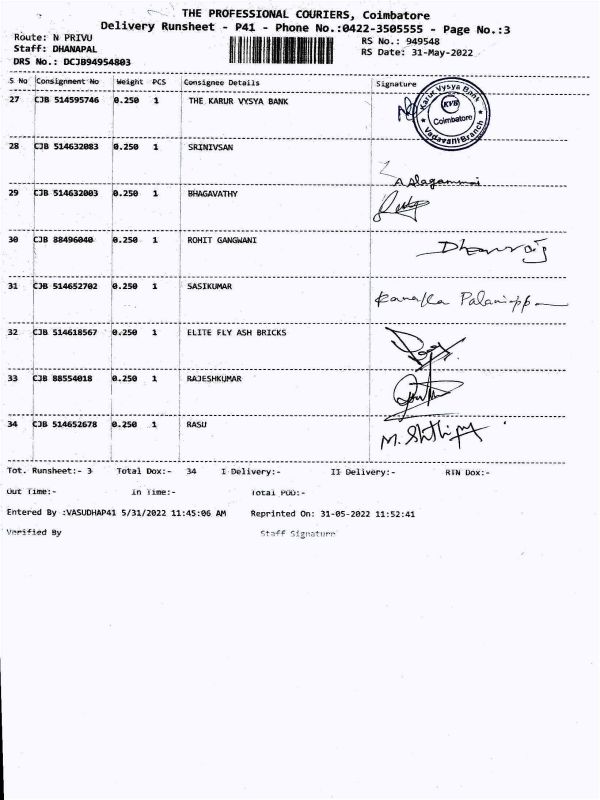 THE PROFESSIONAL COURIERS, Coimbatore
Delivery Runsheet - P41 - Phone No.:0422-3505555 - Page No.:3
Route: N PRIVU RS No.: 949548
Staff: DHANAPAL RS Date: 31-May-2022
DRS No.: DCJB94954803
S No Consignment No Weight PCS Consignee Details Signature
27 CJB 514595746 0.250 1 THE KARUR VYSYA BANK
Karur Vysya Bank
KVB
Coimbatore
Vadavalli Branch
28 CJB 514632083 0.250 1 SRINIVSAN
Aalagammai
29 CJB 514632003 0.250 1 BHAGAVATHY
30 CJB 88496040 0.250 1 ROHIT GANGWANI
Dhanraj
31 CJB 514652702 0.250 1 SASIKUMAR
Kanaka Palaniappan
32 CJB 514618567 0.250 1 ELITE FLY ASH BRICKS
33 CJB 88554018 0.250 1 RAJESHKUMAR
34 CJB 514652678 0.250 1 RASU
M.
Tot. Runsheet:- 3 Total Dox:- 34 I Delivery:- II Delivery:- RTN Dox:-
Out Time:- In Time:- Total POD:-
Entered By :VASUDHAP41 5/31/2022 11:45:06 AM Reprinted On: 31-05-2022 11:52:41
Verified By Staff Signature